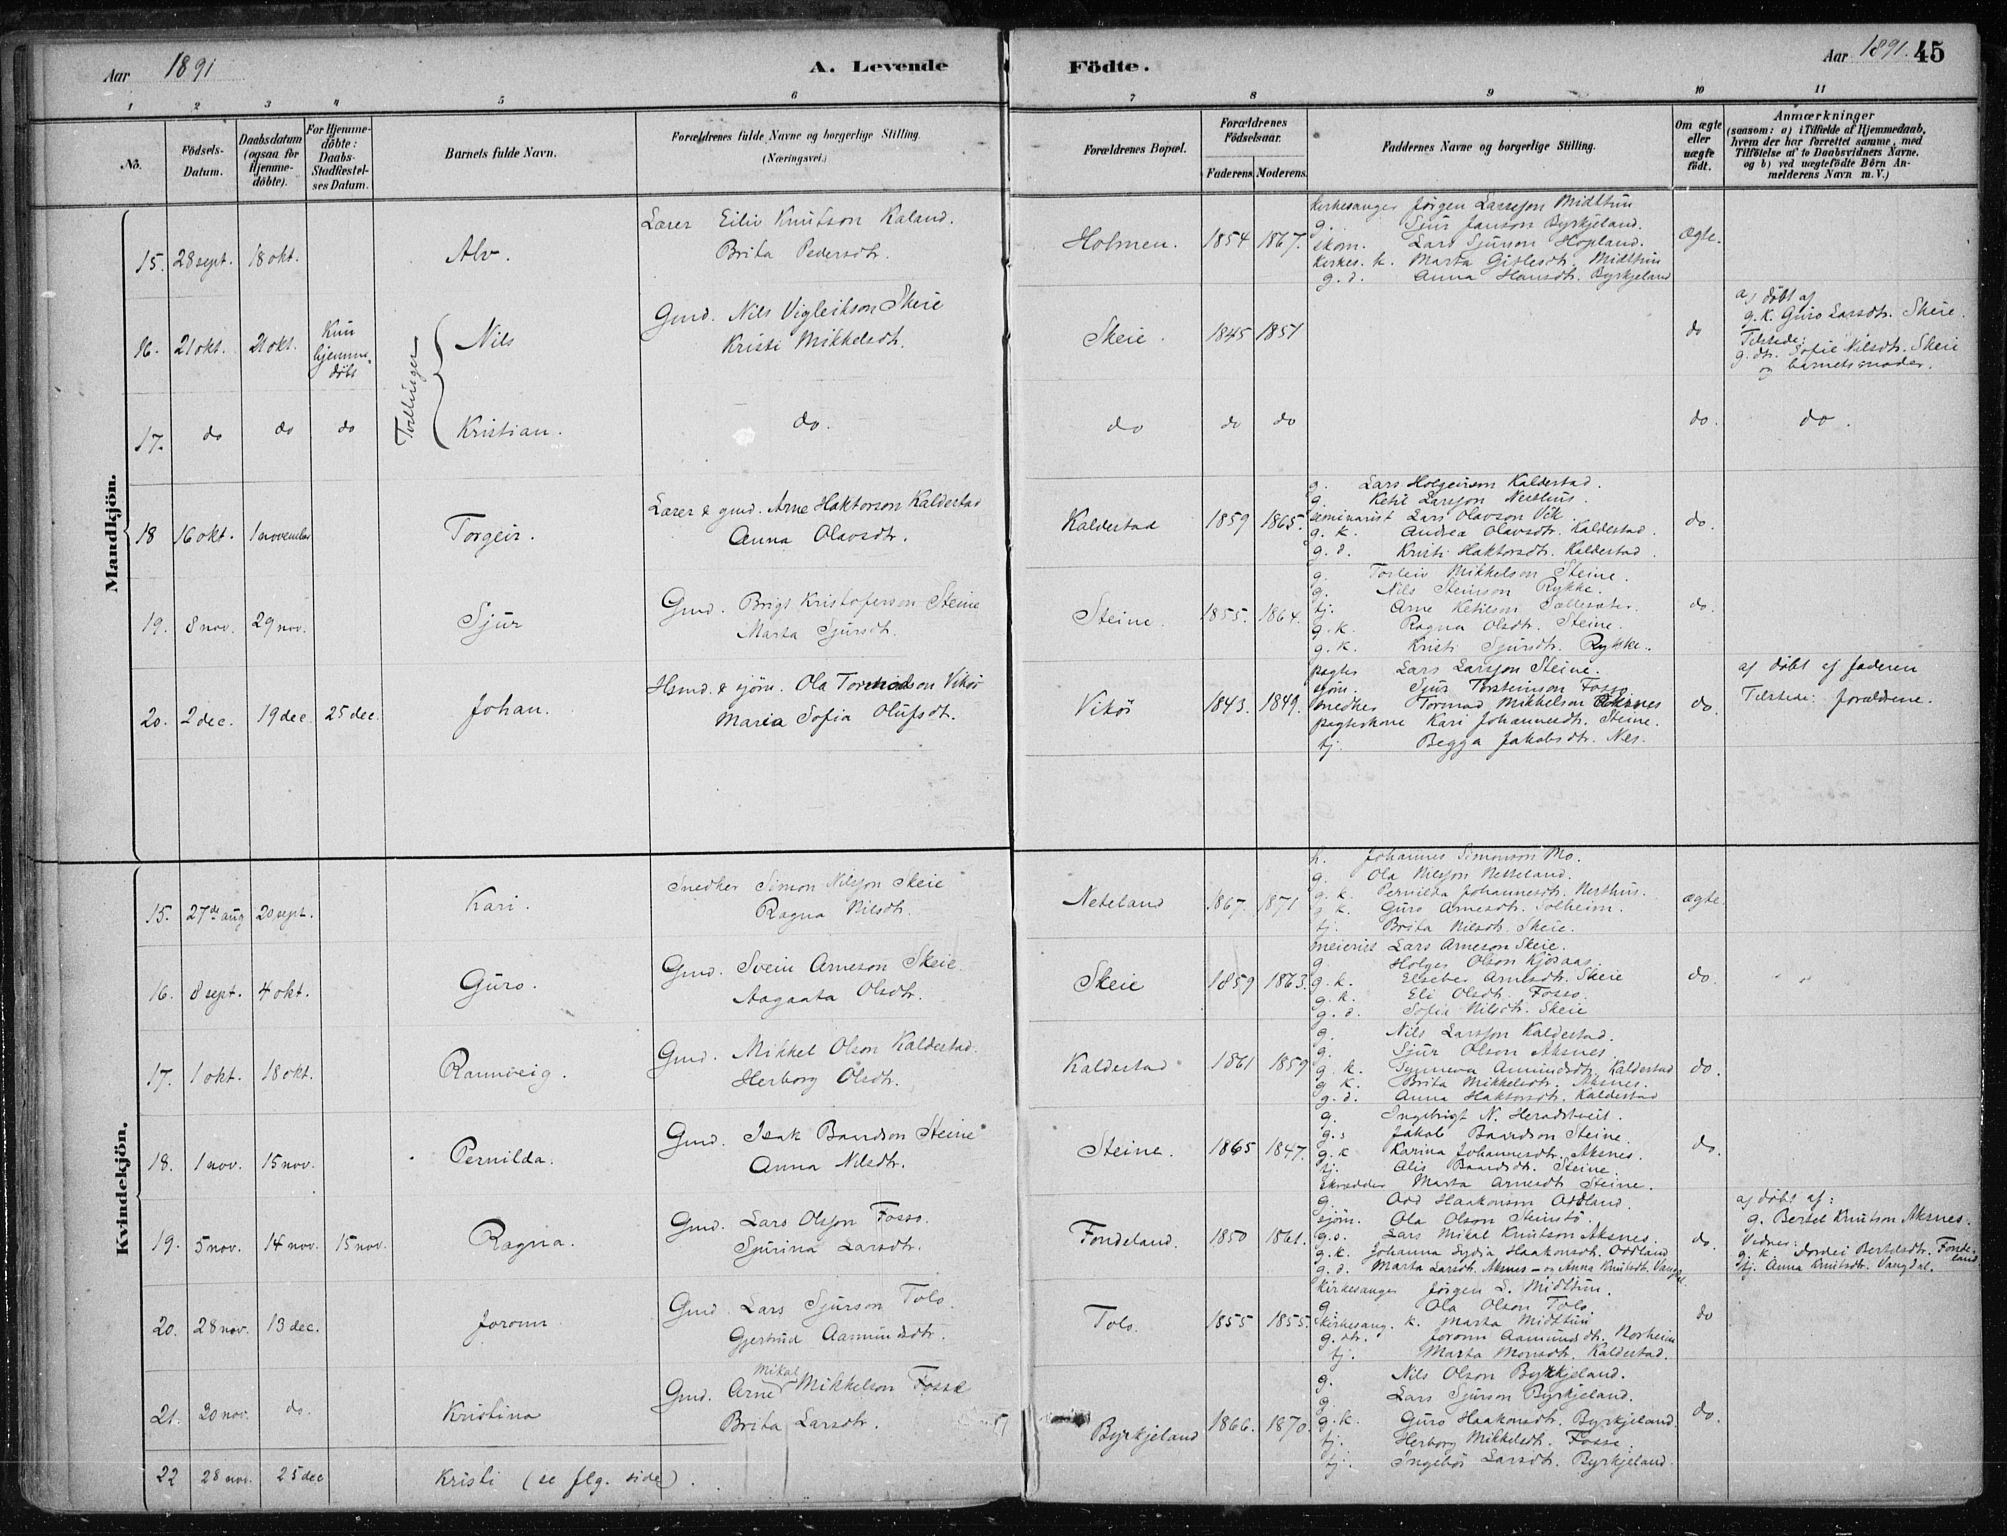 Aar 1891
A. Levende Födte.
Aar 1891. 45
1 2 3 4 5 6 7 8 9 10 11
No.
Födsels-Datum.
Daabsdatum (ogsaa for Hjemme-döbte).
For Hjemme-döbte: Daabs-Stadfæstel-ses Datum.
Barnets fulde Navn.
Forældrenes fulde Navne og borgerlige Stilling. (Næringsvei.)
Forældrenes Bopæl.
Forældrenes Födselsaar. Faderens. Moderens.
Faddernes Navne og borgerlige Stilling.
Om ægte eller uægte födt.
Anmærkninger (saasom: a) i Tilfælde af Hjemmedaab, hvem der har forrettet samme, med Tilföielse af to Daabsvidners Navne, og b) ved uægtefödte Börn An-melderens Navn m. V.)
Mandkjön.
15. 28 sept. 18 okt. Alv.
Lærer Eiliv Knutson Kaland.
Brita Pedersdtr.
Holmen. 1854 1867.
Kirkesanger Jørgen Larsson Midttun
g. Sjur Janson Byrkjeland.
skom. Lars Sjurson Hopland.
Kirkes. k. Marta Gitlesdtr. Midttun
g. d. Anna Hansdtr. Byrkjeland
ægte.
16. 21 okt. 21 okt. Kun hjemme-døbt
Tvillinger
Nils
Gmd. Nils Vigleikson Skeie
Kristi Mikkelsdtr.
Skeie. 1845 1851
do
a) døbt af
g. k. Guro Larsdtr. Skeie.
Tilstede:
g. dtr. Sofie Nilsdtr. Skeie
og barnets moder.
17. do do do Kristian. do. do do do do. do.
18 16 okt. 1 november Torgeir.
Lærer & gmd. Arne Haktorson Kaldestad
Anna Olavsdtr.
Kaldestad 1859 1865.
g. Lars Holgeirson Kaldestad.
g. Ketil Larsson Nesthus.
seminarist Lars Olavson Vik
g. k. Andrea Olavsdtr. Kaldestad.
g. d. Kristi Haktorsdtr. Kaldestad.
do.
19. 8 nov. 29 nov. Sjur
Gmd. Brigt Kristoferson Steine
Marta Sjursdtr.
Steine. 1855. 1864.
g. Torleiv Mikkelson Steine.
g. Nils Steinson Rykke.
tj. Arne Ketilson
g. k. Ragna Olsdtr. Steine.
g. k. Kristi Sjursdtr. Rykke.
do.
20. 2 dec. 19 dec. 25 dec. Johan.
Hsmd. & sjøm. Ola Tormodson Vikør
Maria Sofia Olufsdt.
Vikør 1843. 1849.
pagter Lars Larsson Steine.
sjøm. Sjur Torsteinson Fosse.
snedker Tormod Mikkelson Aksnes
pagterkone Kari Johannesdt. Steine.
tj. Begga Jakobsdtr. Nes.
do.
a) døbt af faderen
Tilstede: forældrene.
Kvindekjön.
15. 27de aug 20 sept. Kari.
Snedker Simon Nilsson Skeie
Ragna Nilsdtr.
Neteland 1867. 1871
h. Johannes Simonson Mo.
g. Ola Nilsson Netteland.
g. k. Pernilda Johannesdt. Nesthus.
g. k. Guro Arnesdtr. Solheim.
tj. Brita Nilsdtr. Skeie.
ægte.
16. 8 sept. 4 okt. Guro.
Gmd. Svein Arneson Skeie.
Aagaata Olsdtr.
Skeie 1859 1863.
meierist Lars Arneson Skeie.
g. Holger Olson Kjosaas.
g. k. Elseber Arnesdt. Skeie
g. k. Eli Olsdt. Fosso.
g. d. Sofia Nilsdtr. Skeie
do.
17. 1 okt. 18 okt. Rannveig.
Gmd. Mikkel Olson Kaldestad.
Herborg Olsdtr.
Kaldestad 1861 1859
g. Nils Larsson Kaldestad.
g. Sjur Olson Aksnes.
g. k. Synneva Aamundsdtr. Kaldestad
g. k. Brita Mikkelsdtr. Aksnes.
g. d. Anna Haktorsdt. Kaldestad
do.
18. 1 nov. 15 nov. Pernilda.
Gmd. Isak Baardson Steine
Anna Nilsdtr.
Steine. 1865 1847.
g. Ingebrigt N. Heradstveit.
g. s Jakob Baardson Steine.
g. k Karina Johannesdt. Aksnes.
tj. Alis Baardsdt. Steine.
skrædder Marta Arnesdt. Steine.
do.
19. 5 nov. 14 nov. 15 nov. Ragna.
Gmd. Lars Olsson Fosso.
Sjurina Larsdtr.
Fondeland. 1850 1861.
g. Odd Haakonson Oddland.
sjøm. Ola Olson Steinstø.
g. s. Lars Mikal Knutson Aksnes.
g. k. Johanna Lydia Haakonsdt. Oddland
g. d. Marta Larsdt. Aksnes - og Anna Knutsdt. Vangdal.
do.
a) døbt af:
g. Bertel Knutson Aksnes.
Vidner:
g. k. Dordei Bertelsdtr. Fonde-land
tj. Anna Knutsdtr. Vangdal.
20. 28 nov. 13 dec. Joronn
Gmd. Lars Sjurson Tolo.
Gjertrud Aamundsdtr.
Tolo. 1855 1855.
Kirkesanger Jørgen L. Midttun.
g. Ola Olson Tolo.
Kirkesang. k. Marta Midttun
g. dtr. Joronn Aamundsdt. Norheim
tj. Marta Monsdtr. Kaldestad.
do
21. 20 nov. do. Kristina
Gmd. Arne Mikal Mikkelson Fosse
Brita Larsdtr.
Byrkjeland 1866. 1870.
g. Nils Olson Byrkjeland.
g. Lars Sjurson Byrkjeland.
g. k. Guro Haakonsdt. Byrkjeland.
tj. Herborg Mikkelsdt. Fosse.
tj. Ingebør Larsdtr. Byrkjeland.
do.
22 28 nov. 25 dec Kristi (se flg. side).